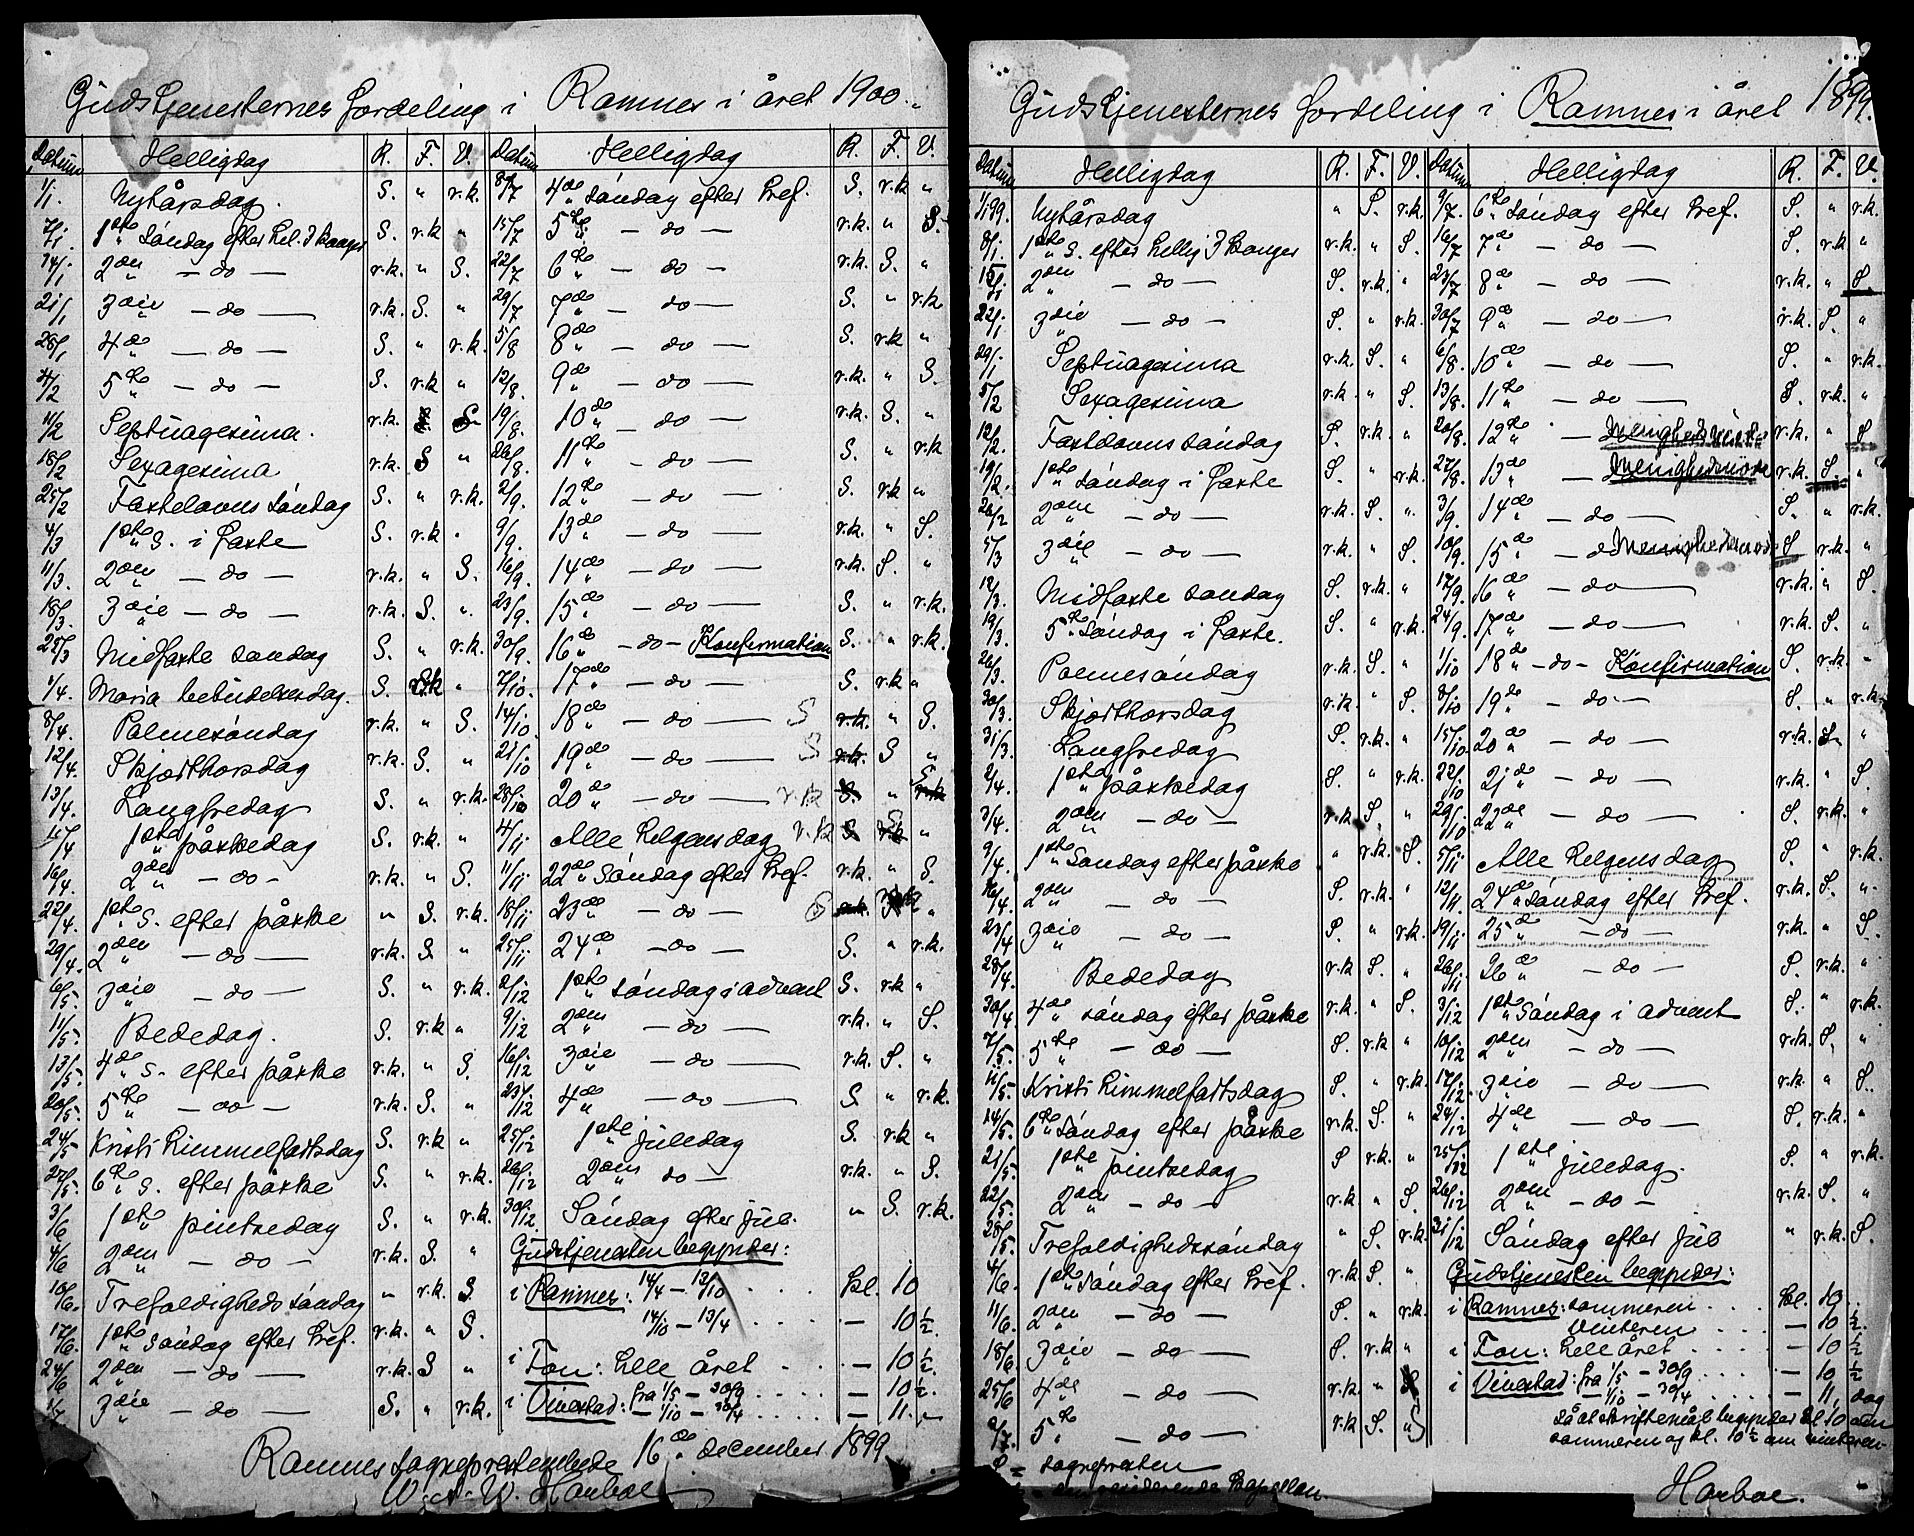 Gudstjenesternes fordeling i Ramnes i året 1900.
Datum Helligdag R. F. V.
1/1 Nytårsdag. S. " r.k.
7/1 1ste Søndag efter hel. 3 Konger S. r.k "
14/1 2den — do — r.k. " S.
21/1 3die — do — r.k. S. "
28/1 4de — do — S. " r.k.
4/2 5te — do — S. r.k "
11/2 Septuagesima. r.k. S.
18/2 Sexagesima r.k. S "
25/2 Fastelavns søndag S. " r.k.
4/3 1ste S. i faste S. r.k "
11/3 2den — do — r.k. " S.
18/3 3die — do — r.k. S. "
25/3 Midfaste søndag S. " r.k.
1/4 Maria bebudelsesdag. S. r.k "
8/4 Palmesøndag r.k. " S.
12/4 Skjærthorsdag r.k. S. "
13/4 Langfredag S. " r.k.
15/4 1ste påskedag S. r.k. "
16/4 2den — do — r.k. " S.
22/4 1ste S. efter påske " S. r.k.
29/4 2den — do — r.k. S. "
6/5 3die — do — S. " r.k.
11/5 Bededag. S. r.k "
13/5 4de S. efter påske r.k. " S.
20/5 5te — do — r.k. S. "
24/5 Kristi himmelfartsdag S. r.k "
27/5 6te S. efter påske S. " r.k.
3/6 1ste pintsedag S. " r.k.
4/6 2den — do — r.k. S. "
10/6 Trefoldigheds søndag " r.k. S.
17/6 1ste søndag efter Tref. r.k. " S.
24/6 2den — do — r.k. S "
1/7 3die — do — S. " r.k.
Datum Helligdag R. F. V.
8/7 4de søndag efter Tref. S. r.k "
15/7 5te — do — r.k. " S.
22/7 6te — do — r.k. S. "
29/7 7de — do — S. " r.k
5/8 8de — do — S. r.k "
12/8 9de — do — r.k. " S.
19/8 10de — do — r.k. S. "
26/8 11te — do — S. " r.k
2/9 12te — do — S. r.k "
9/9 13de — do — r.k. " S.
16/9 14de — do — r.k. S. "
23/9 15de — do — S. " r.k.
30/9 16de — do — Konfirmation S. " r.k.
7/10 17de — do — S. r.k "
14/10 18de — do — S r.k. " S.
21/10 19de — do — S r.k. S "
28/10 20de — do — r.k S. " r.k S
4/11 Alle helgensdag r.k S. r.k S "
11/11 22de Søndag efter Tref. r.k. " S.
18/11 23de — do — S r.k. "
25/11 24de — do — S. " r.k.
2/12 1ste søndag i advent S. r.k "
9/12 2den — do — r.k. " S.
16/12 3die — do — r.k. S. "
23/12 4de — do — S. " r.k.
25/12 1ste juledag S. r.k "
26/12 2den do — r.k. " S.
30/12 Søndag efter Jul. " S. r.k.
Gudstjenesten begynder:
i Ramnes: 14/4 — 13/10 . . . kl. 10
14/10 — 13/4 . . . . — 10 ½.
i Fon: hele året . . . — 10 ½.
i Vivestad: fra 1/5 — 30/9 . . . . — 10 ½.
— 1/10 — 30/4 . . . . — 11. —
Ramnes sogneprestembede 16de december 1899
W. Harboe
Gudstjenesternes fordeling i Ramnes i året 1899.
Datum Helligdag R. F. V.
1/1 99. Nytårsdag " S. r.k.
8/1. 1ste S. efter hellig 3 Konger r.k. " S.
15/1 2den — do — S. r.k. "
22/1 3die — do — S. " r.k.
29/1 Septuagesima r.k. S. "
5/2 Sexagesima r.k. " S.
12/2. Fastelavns søndag S. r.k. "
19/2. 1ste Søndag i faste S. " r.k.
26/2 2den — do — r.k. S. "
5/3 3die — do — r.k. " S.
12/3. Midfaste søndag S. r.k. "
19/3 5te Søndag i faste. S. " r.k.
26/3. Palmesøndag r.k. S. "
30/3. Skjærthorsdag r.k " S.
31/3 Langfredag S. r.k. "
2/4. 1ste påskedag S. " r.k.
3/4. 2den — do — r.k. S. "
9/4 1ste Søndag efter påske " r.k. S.
16/4. 2den — do — S. r.k. "
23/4 3die — do — S. " r.k.
28/4. Bededag r.k S. "
30/4 4de søndag efter påske r.k. " S.
7/5. 5te — do — S. r.k "
11/5. Kristi himmelfartsdag S. " r.k.
14/5. 6te Søndag efter påske r.k. S. "
21/5. 1ste pintsedag S r.k. "
22/5. 2den — do — r.k. " S.
28/5. Trefoldighedssøndag " S. r.k
4/6. 1ste søndag efter Tref. r.k S. "
11/6. 2den — do — S. " r.k.
18/6 3die — do — S. r.k "
25/6 4de — do — r.k. " S
2/7. 5te — do — r.k S. "
S = sognepresten
residerende kapellan.
Datum Helligdag R. F. V.
9/7. 6te Søndag efter Tref. S. " r.k.
16/7 7de — do — S. r.k "
23/7 8de — do — r.k. " S.
30/7 9de — do — r.k. S. "
6/8. 10de — do — S. " r.k.
13/8. 11te — do — S. r.k. "
20/8. 12te — Menighedsmøde r.k. " S
27/8. 13de — Menighedsmøde r.k. S. "
3/9. 14de — do — S. " r.k.
10/9. 15de — d Menighedsmøde S r.k. "
17/9. 16de — do — r.k. " S.
24/9. 17de — do — r.k. S. "
1/10 18de — do — Konfirmation S. r.k. "
8/10 19de — do — S. " r.k.
15/10 20de — do — r.k S. "
22/10 21de — do — r.k. " S.
29/10 22de — do — S. r.k. "
5/11. Alle helgensdag S. " r.k.
12/11 24de søndag efter Tref. r.k. S. "
19/11 25de — do — r.k. " S.
26/11 26de — do — S. r.k. "
3/12 1ste Søndag i advent S. " r.k.
10/12 2den — do — r.k. S. "
17/12. 3die — do — r.k. " S.
24/12 4de — do — S. r.k. "
25/12 1ste juledag. S. " r.k.
26/12 2den — do — r.k. S. "
31/12 Søndag efter Jul " r.k. S.
Gudstjenesten begynder:
i Ramnes: sommeren . . . kl. 10.
vinteren . . . . — 10 ½.
i Fon: hele året . . . . — 10 ½
i Vivestad: fra 1/5 — 30/9 . . . . — 10 ½
— 1/10 — 30/4 . . . — 11, dog
så at skriftemål begynder kl. 10 om
sommeren og kl. 10 ½ om vinteren
Harboe.